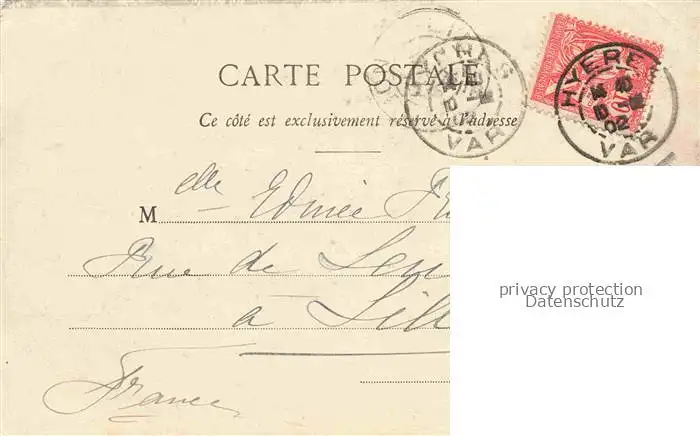 CARTE POSTALE
Ce côté est exclusivement réservé à l'adresse
HYERES
VAR
HYERES
02
VAR
M elle Edmée
Rue de
à Lill
France
privacy protection
Datenschutz